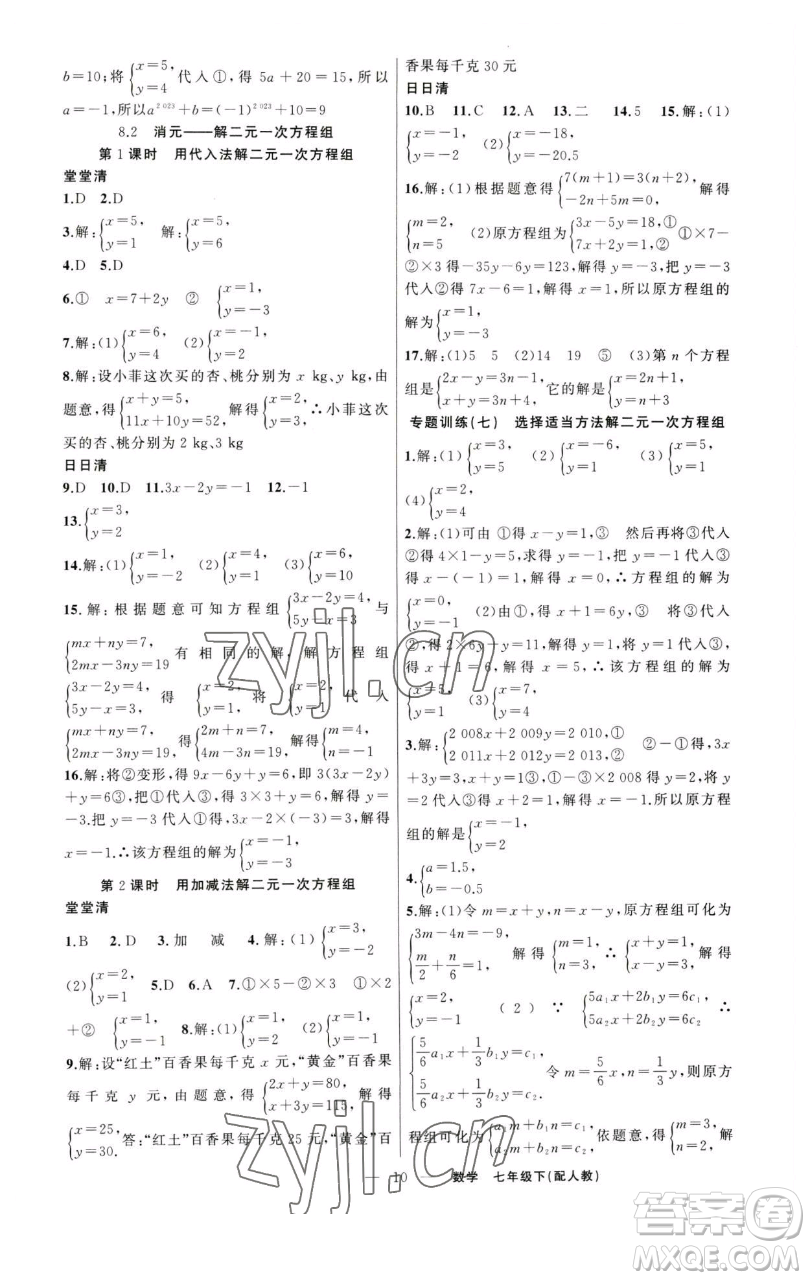 b=10;将{x=5, y=4 代入①,得 5a+20=15,所以
a=-1,所以a^2 023+b=(-1)^2 023+10=9
8.2 消元——解二元一次方程组
第1课时 用代入法解二元一次方程组
堂堂清
1.D 2.D
3.解:{x=5, y=1 解:{x=5, y=6
4.D 5.D
6.① x=7+2y ② {x=1, y=-3
7.解:(1){x=6, y=4 (2){x=-1, y=2
8.解:设小菲这次买的杏、桃分别为 x kg、y kg,由
题意,得{x+y=5, 11x+10y=52, 解得{x=2, y=3, ∴小菲这次
买的杏、桃分别为 2 kg、3 kg
日日清
9.D 10.D 11.3x-2y=-1 12.-1
13.{x=3, y=2
14.解:(1){x=1, y=-2 (2){x=2, y=1 (3){x=6, y=10
15.解:根据题意可知方程组{3x-2y=4, 5y-x=3 与
{mx+ny=7, 2mx-3ny=19 有相同的解,解方程组
{3x-2y=4, 5y-x=3, 得{x=2, y=1, 将{x=2, y=1, 代入
{mx+ny=7, 2mx-3ny=19 得{2m+n=7, 4m-3n=19, 解得{m=4, n=-1
16.解:将②变形,得 9x-6y+y=6,即 3(3x-2y)
+y=6③,把①代入③得:3×3+y=6,解得 y=
-3,把 y=-3 代入①得,3x-2×(-3)=3,解得
x=-1.∴该方程组的解为{x=-1, y=-3
第2课时 用加减法解二元一次方程组
堂堂清
1.B 2.D 3.加 减 4.解:(1){x=3, y=-2
(2){x=2, y=1 5.D 6.A 7.①×5-②×3 ①×2
+② {x=1, y=1 8.解:(1){x=2, y=1 (2){x=1, y=1
9.解:设“红土”百香果每千克 x 元,“黄金”百香果
每千克 y 元,由题意,得{2x+y=80, x+3y=115, 解得
{x=25, y=30. 答:“红土”百香果每千克25元,“黄金”百
香果每千克30元
日日清
10.B 11.C 12.A 13.二 14.5 15.解:(1)
{x=-1, y=-2 (2){x=-18, y=-20.5
16.解:(1)根据题意得{7(m+1)=3(n+2), -2n+5m=0, 解得
{m=2, n=5 (2)原方程组为{3x-5y=18,① 7x+2y=1,② ①×7-
②×3得-35y-6y=123,解得 y=-3,把 y=-3
代入②得 7x-6=1,解得 x=1,所以原方程组的
解为{x=1, y=-3
17.解:(1)5 5 (2)14 19 ⑤ (3)第n个方程
组是{2x-y=3n-1, x+y=3n+4, 它的解是{x=2n+1, y=n+3
专题训练(七) 选择适当方法解二元一次方程组
1.解:(1){x=3, y=5 (2){x=-6, y=1 (3){x=5, y=1
(4){x=2, y=4
2.解:(1)可由 ①得 x-y=1,③ 然后再将③代入
②得 4×1-y=5,求得 y=-1,把 y=-1代入③
得 x-(-1)=1,解得 x=0,∴方程组的解为
{x=0, y=-1 (2)由①,得 x+1=6y,③ 将③代入
②,得 2×6y-y=11,解得 y=1,把 y=1代入③,
得 x+1=6,解得 x=5,∴该方程组的解为
{x=5, y=1 (3){x=7, y=4
3.解:{2 008x+2 009y=2 010,① 2 011x+2 012y=2 013,② ②-①得,3x
+3y=3,x+y=1,③ ①-③×2 008得 y=2,将 y
=2代入③得 x+2=1,解得 x=-1.所以原方程
组的解是{x=-1, y=2
4.{a=1.5, b=-0.5
5.解:(1)令 m=x+y,n=x-y,原方程组可化为
{3m-4n=-9, m/2+n/6=1, 解得{m=1, n=3, ∴{x+y=1, x-y=3, 解得
{x=2, y=-1 (2)∵{5a₁x+2b₁y=6c₁, 5a₂x+2b₂y=6c₂, ∴
{5/6a₁x+1/3b₁y=c₁, 5/6a₂x+1/3b₂y=c₂. 令 m=5/6x,n=1/3y,则原方
程组可化为{a₁m+b₁n=c₁, a₂m+b₂n=c₂, 依题意,得{m=3, n=2, 解
— 10 — 数学 七年级下(配人教)
zyjl.cn
答案卷
MXQE.COM